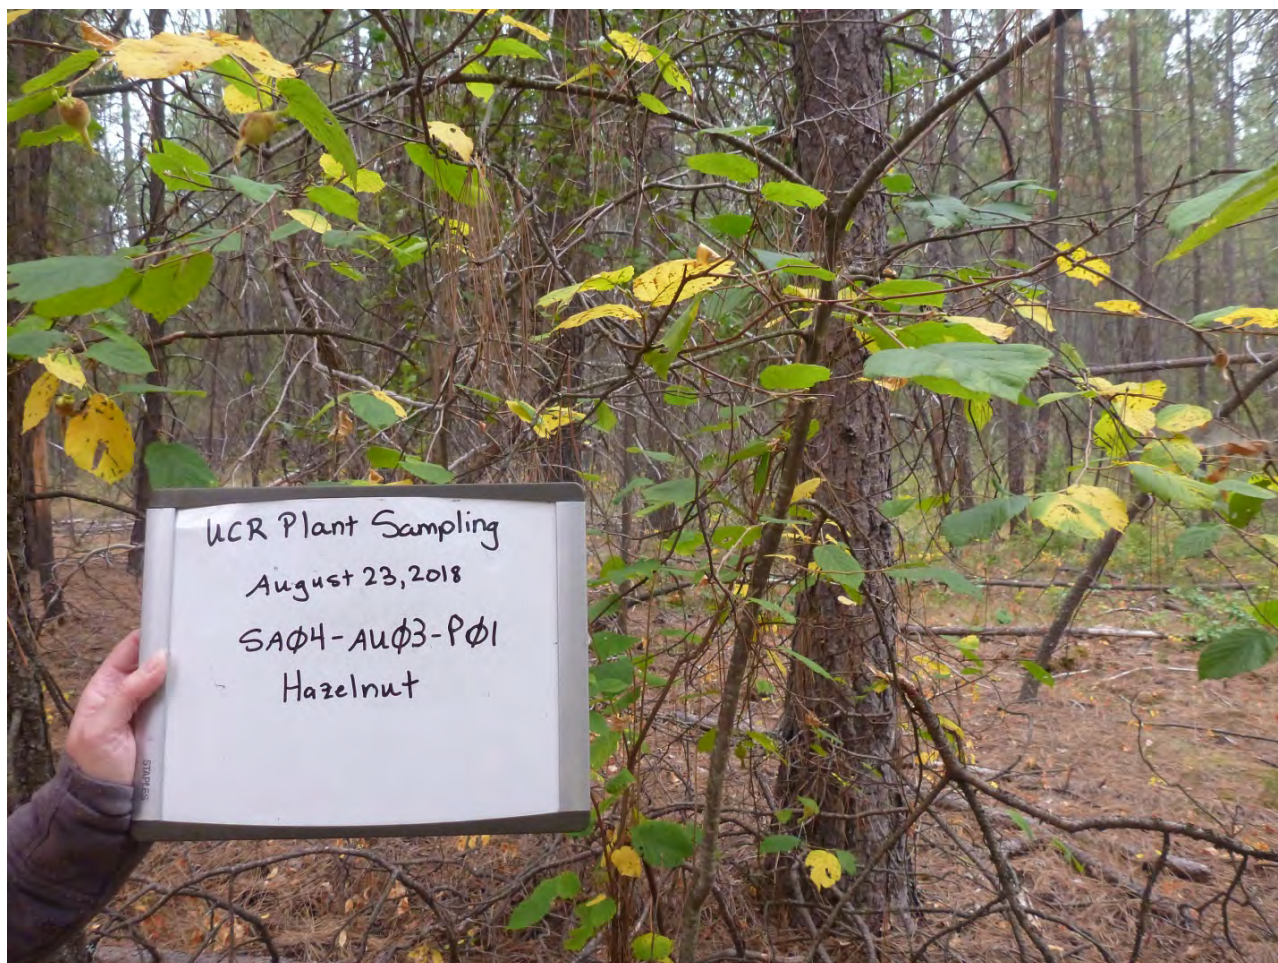 UCR Plant Sampling
August 23, 2018
SAØ4-AUØ3-PØ1
Hazelnut
STAPLES